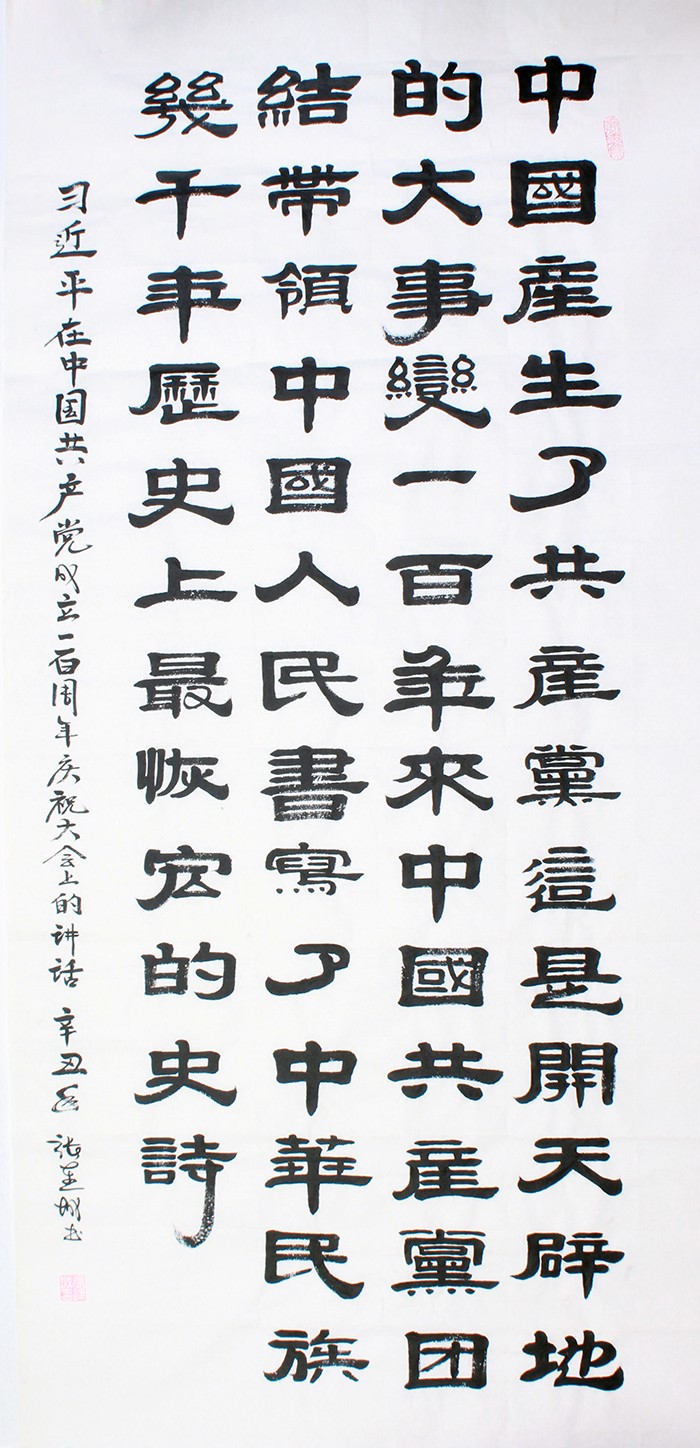 中國産生了共産黨這是開天辟地
的大事變一百年來中國共産黨团
結帶領中國人民書寫了中華民族
幾千年歷史上最恢宏的史詩
习近平在中国共产党成立一百周年庆祝大会上的讲话 辛丑 张 书